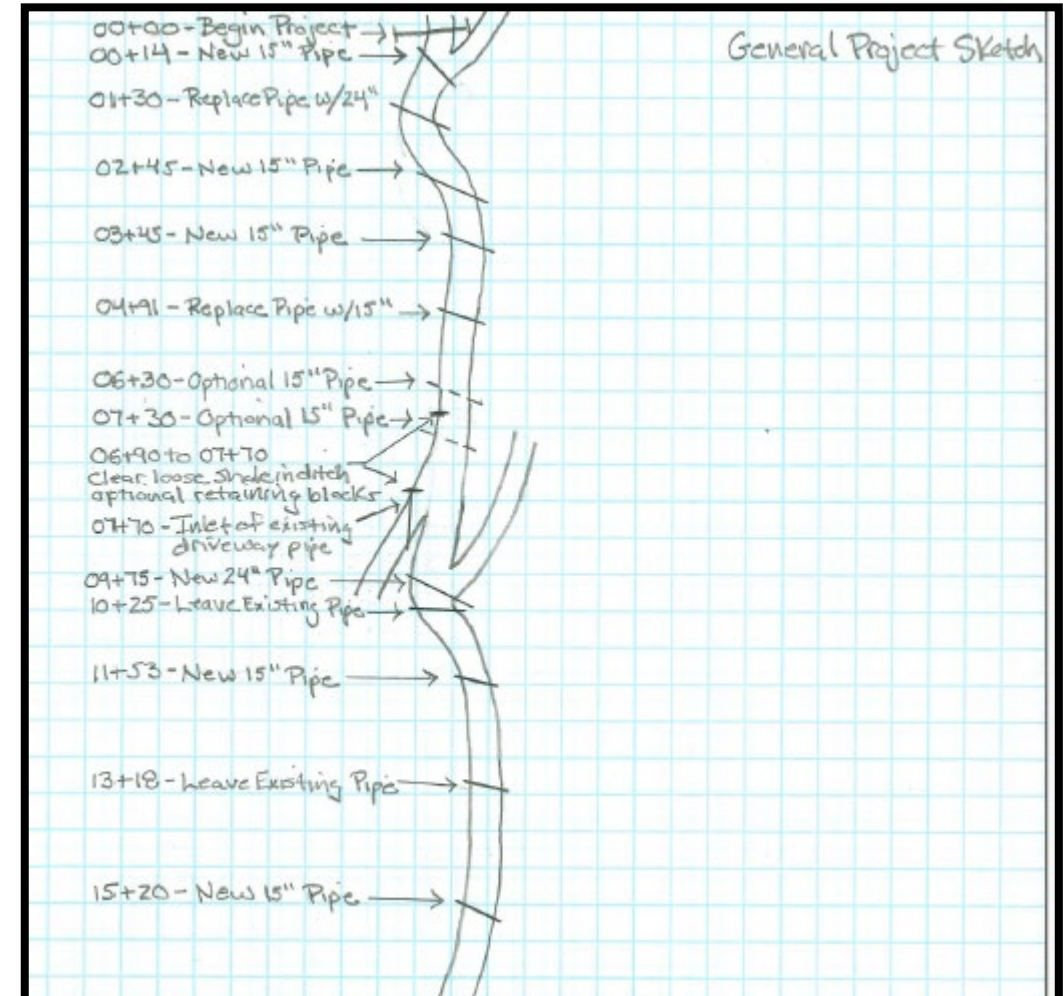 General Project Sketch
00+00-Begin Project
00+14-New 15" Pipe
01+30-Replace Pipe w/24"
02+45-New 15" Pipe
03+45-New 15" Pipe
04+91-Replace Pipe w/15"
06+30-Optional 15" Pipe
07+30-Optional 15" Pipe
06+90 to 07+70
Clear loose shale in ditch
optional retaining blocks
07+70-Inlet of existing
driveway pipe
09+75-New 24" Pipe
10+25-Leave Existing Pipe
11+53-New 15" Pipe
13+18-Leave Existing Pipe
15+20-New 15" Pipe